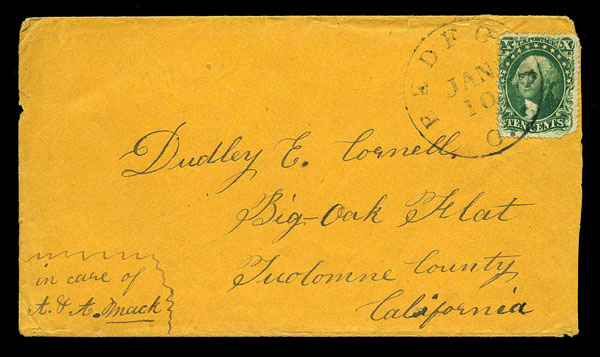 BEDFO
JAN
10
O.
X U.S. POSTAGE X
TEN CENTS
Dudley E. Cornell,
Big-Oak Flat
Tuolomne County
California
in care of
A. & A.